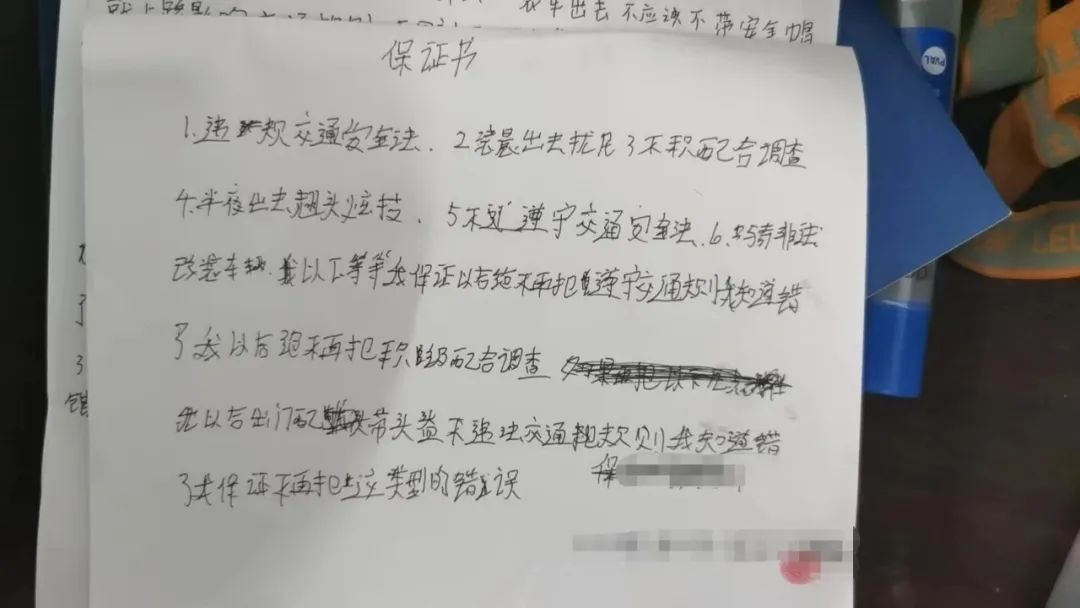 衣车出去不应该不带安全帽
保证书
1.违规交通安全法、2.装最出去扰民3不积配合调查
4.半夜出去翘头炫技、5不遵守交通安全法、6.非法
改装车辆.以上等等我保证以后绝不再犯遵守交通规则我知道错
了我以后绝不再犯积级配合调查
我以后出门配带头盔不违法交通规则我知道错
了我保证不再犯这类型的错误
保
PVAL